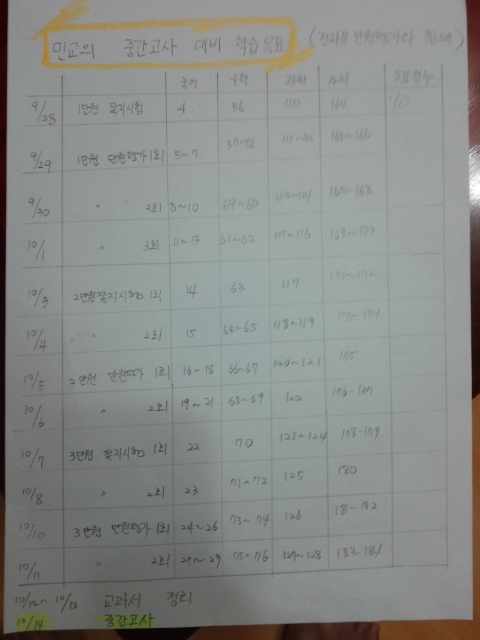 민교의 중간고사 대비 학습 목표
국어 수학 과학 사회 목표점수
9/28 1단원 쪽지시험 4 56 110 164 90
9/29 1단원 단원평가 1회 5~7 37~58 165~166
9/30 " " 2회 8~10 59~60 113~114 167~168
10/1 " 3회 11~13 61~62 115~116 169~170
10/3 2단원 쪽지시험 1회 14 63 117 171~172
10/4 2회 15 64~65 118~119 173~174
10/5 2단원 단원평가 1회 16~18 66~67 120~121 175
10/6 " 2회 19~21 68~69 122 176~177
10/7 3단원 쪽지시험 1회 22 70 123~124 178~179
10/8 " 2회 23 71~72 125 180
10/10 3단원 단원평가 1회 24~26 73~74 126 181~182
10/11 " 2회 27~29 75~76 127~128 183~184
10/12~10/13 교과서 정리
10/14 중간고사